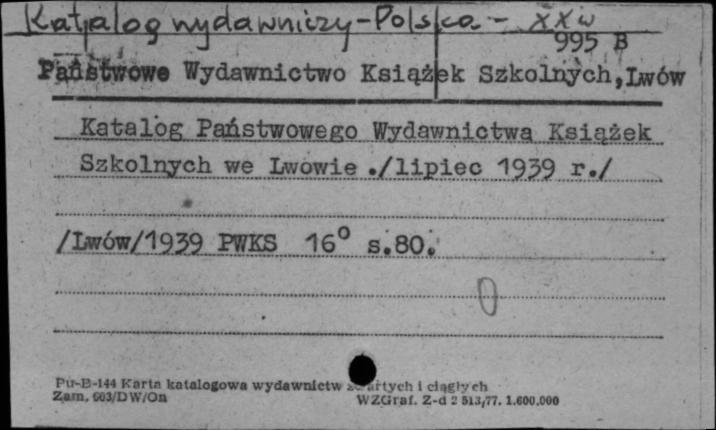 Katalog wydawniczy - Polska - XXw
995 B
Państwowe Wydawnictwo Książek Szkolnych, Lwów
Katalog Państwowego Wydawnictwa Książek
Szkolnych we Lwowie ./lipiec 1939 r./
/Lwów/1939 PWKS 16° s.80.
0
Pu-B-144 Karta katalogowa wydawnictw zwartych i ciągłych
Zam. 603/DW/On WZGraf. Z-d 2 513/77. 1.600.000